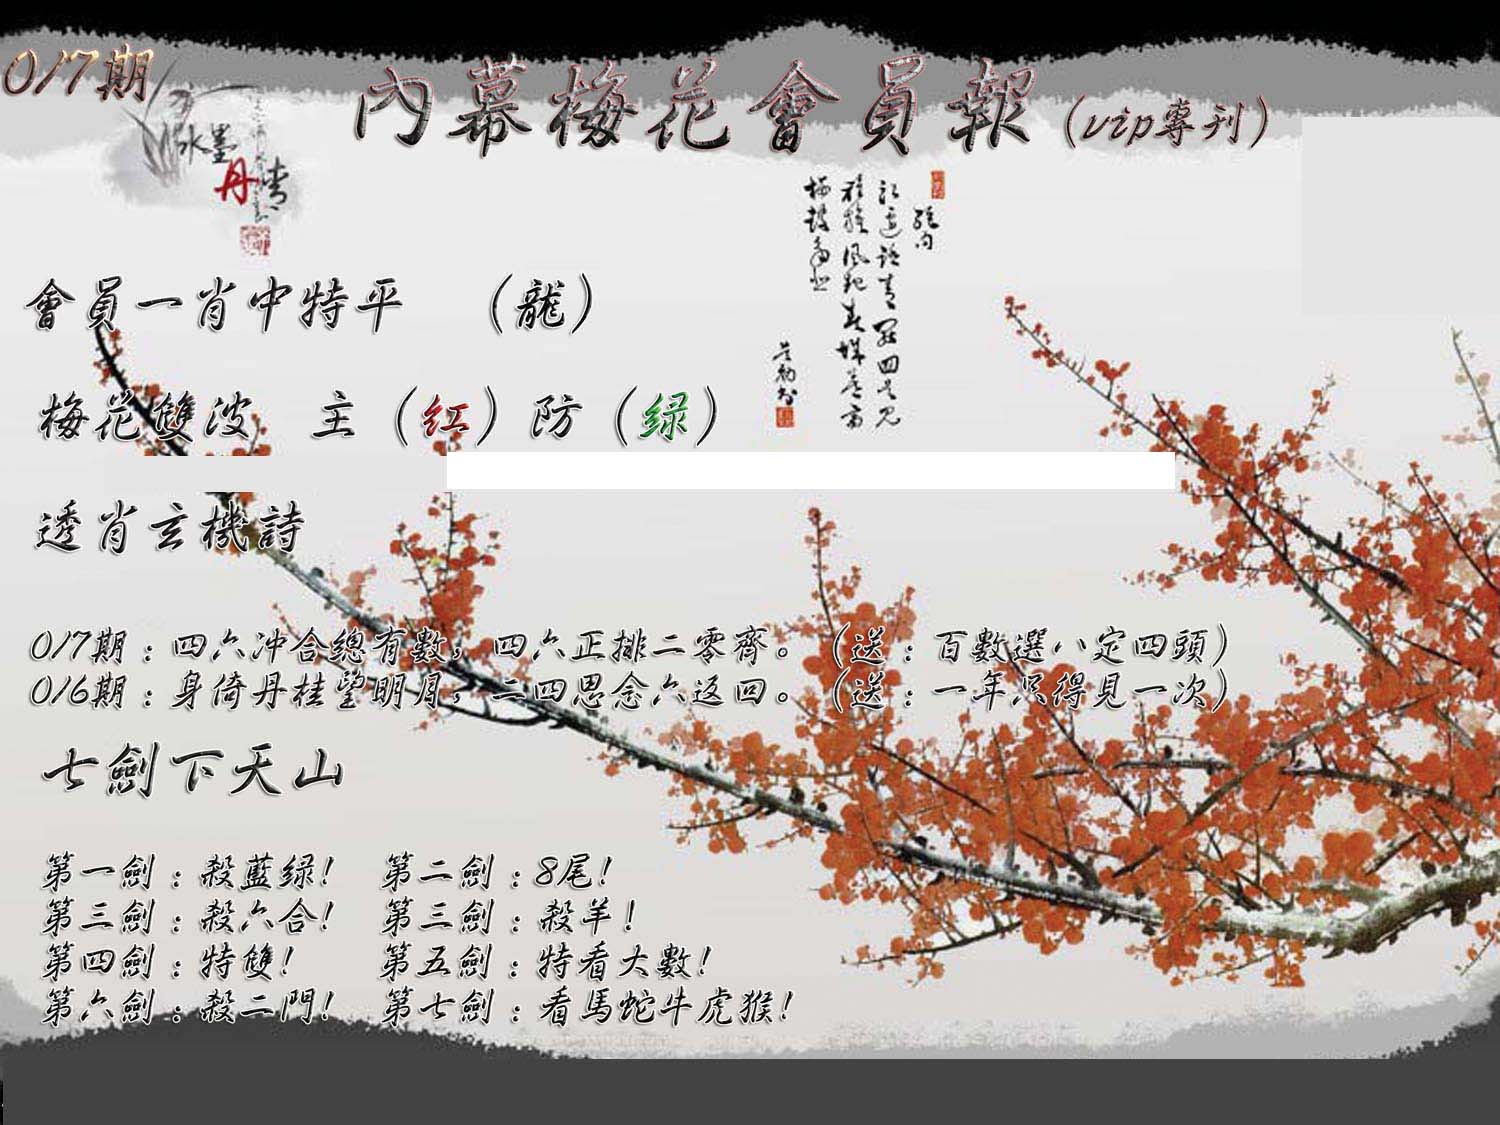 017期
內幕梅花會員報(vip專刊)
水墨
丹青
會員一肖中特平 (龍)
梅花雙波 主(红)防(绿)
透肖玄機詩
017期:四六冲合總有數,四六正排二零齊。(送:百數選八定四頭)
016期:身倚丹桂望明月,二四思念六返回。(送:一年只得見一次)
七劍下天山
第一劍:殺藍绿! 第二劍:8尾!
第三劍:殺六合! 第三劍:殺羊!
第四劍:特雙! 第五劍:特看大數!
第六劍:殺二門! 第七劍:看馬蛇牛虎猴!